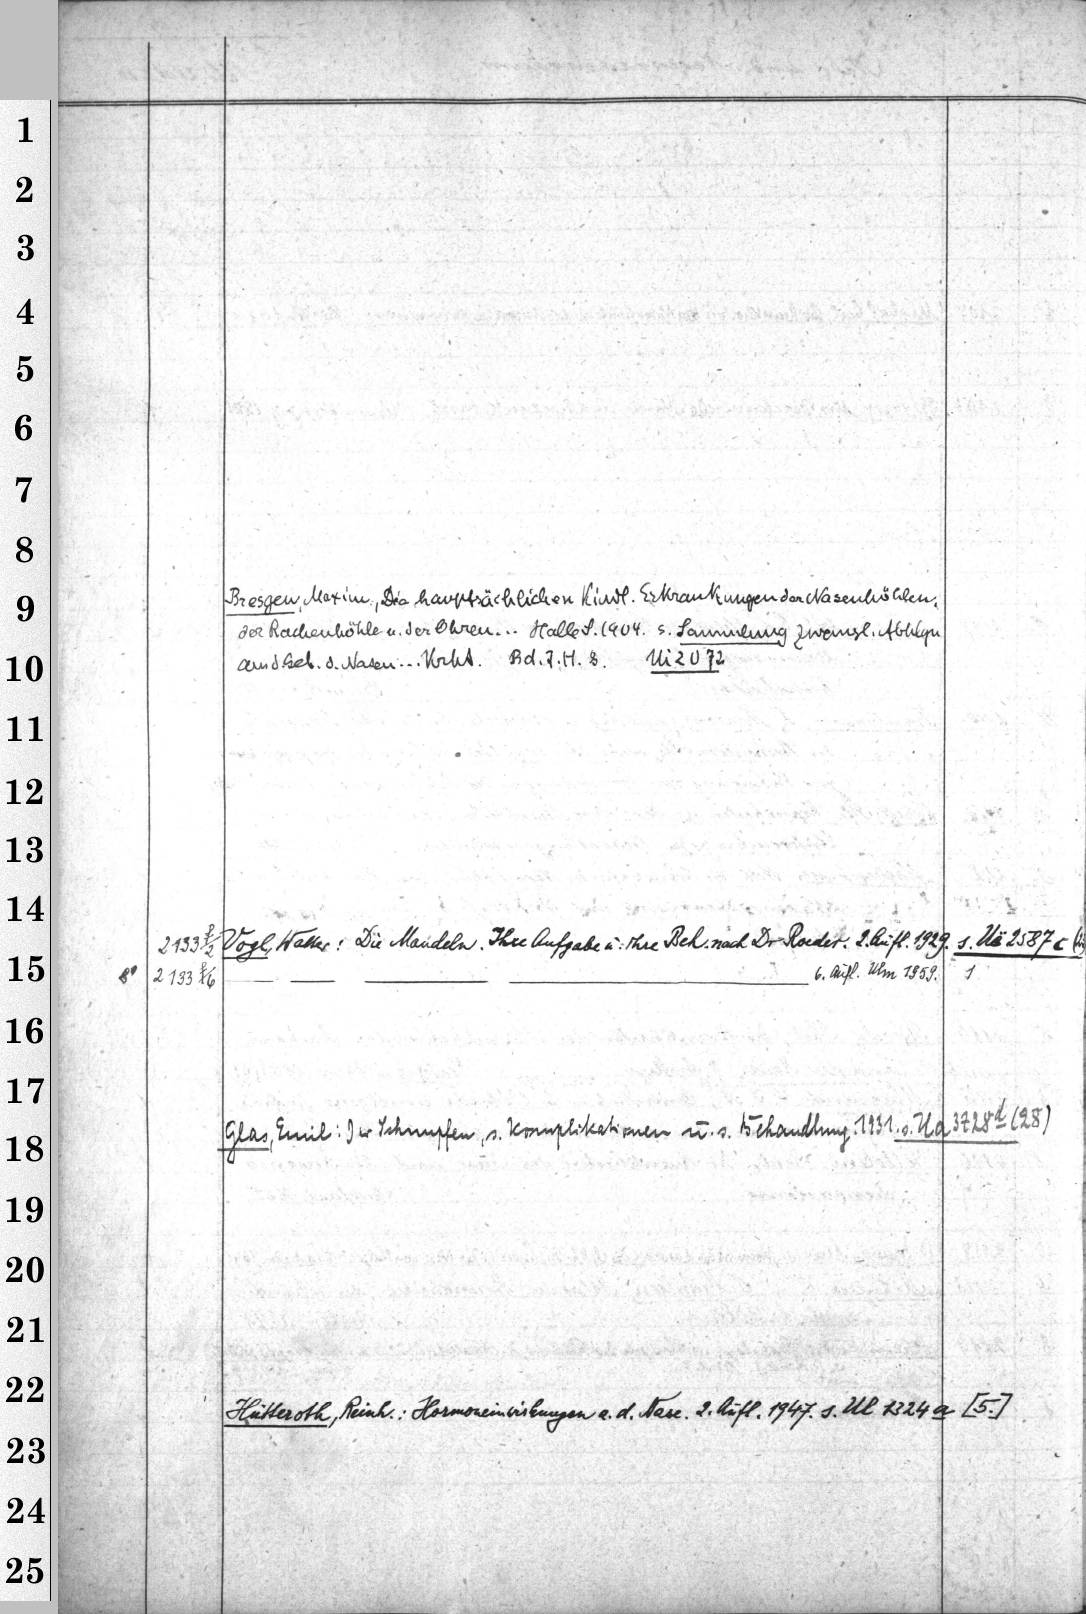 1
2
3
4
5
6
7
8
9
Bresgen, Maxim., Die hauptsächlichen Kindl. Erkrankungen der Nasenhöhlen,
der Rachenhöhle u. der Ohren... Halle S. 1904. s. Sammlung zwangl. Abhdgn
10
a. d. Geb. d. Nasen... Bd. 7. H. 8. Ui 2072
11
12
13
14
2133 Vogl, Walter: Die Mandeln. Ihre Aufgabe u. ihre Beh. nach Dr Roeder. 2. Aufl. 1929. s. Uë 2587 c
15
8° 2133 6. Aufl. Ulm 1959. 1
16
17
Glas, Emil: Der Schnupfen, s. Komplikationen u. s. Behandlung. 1931. s. Ua 3728 d (28)
18
19
20
21
22
Hütteroth, Reinh.: Hormoneinwirkungen a. d. Nase. 2. Aufl. 1947. s. Ul 1324 a [5.]
23
24
25